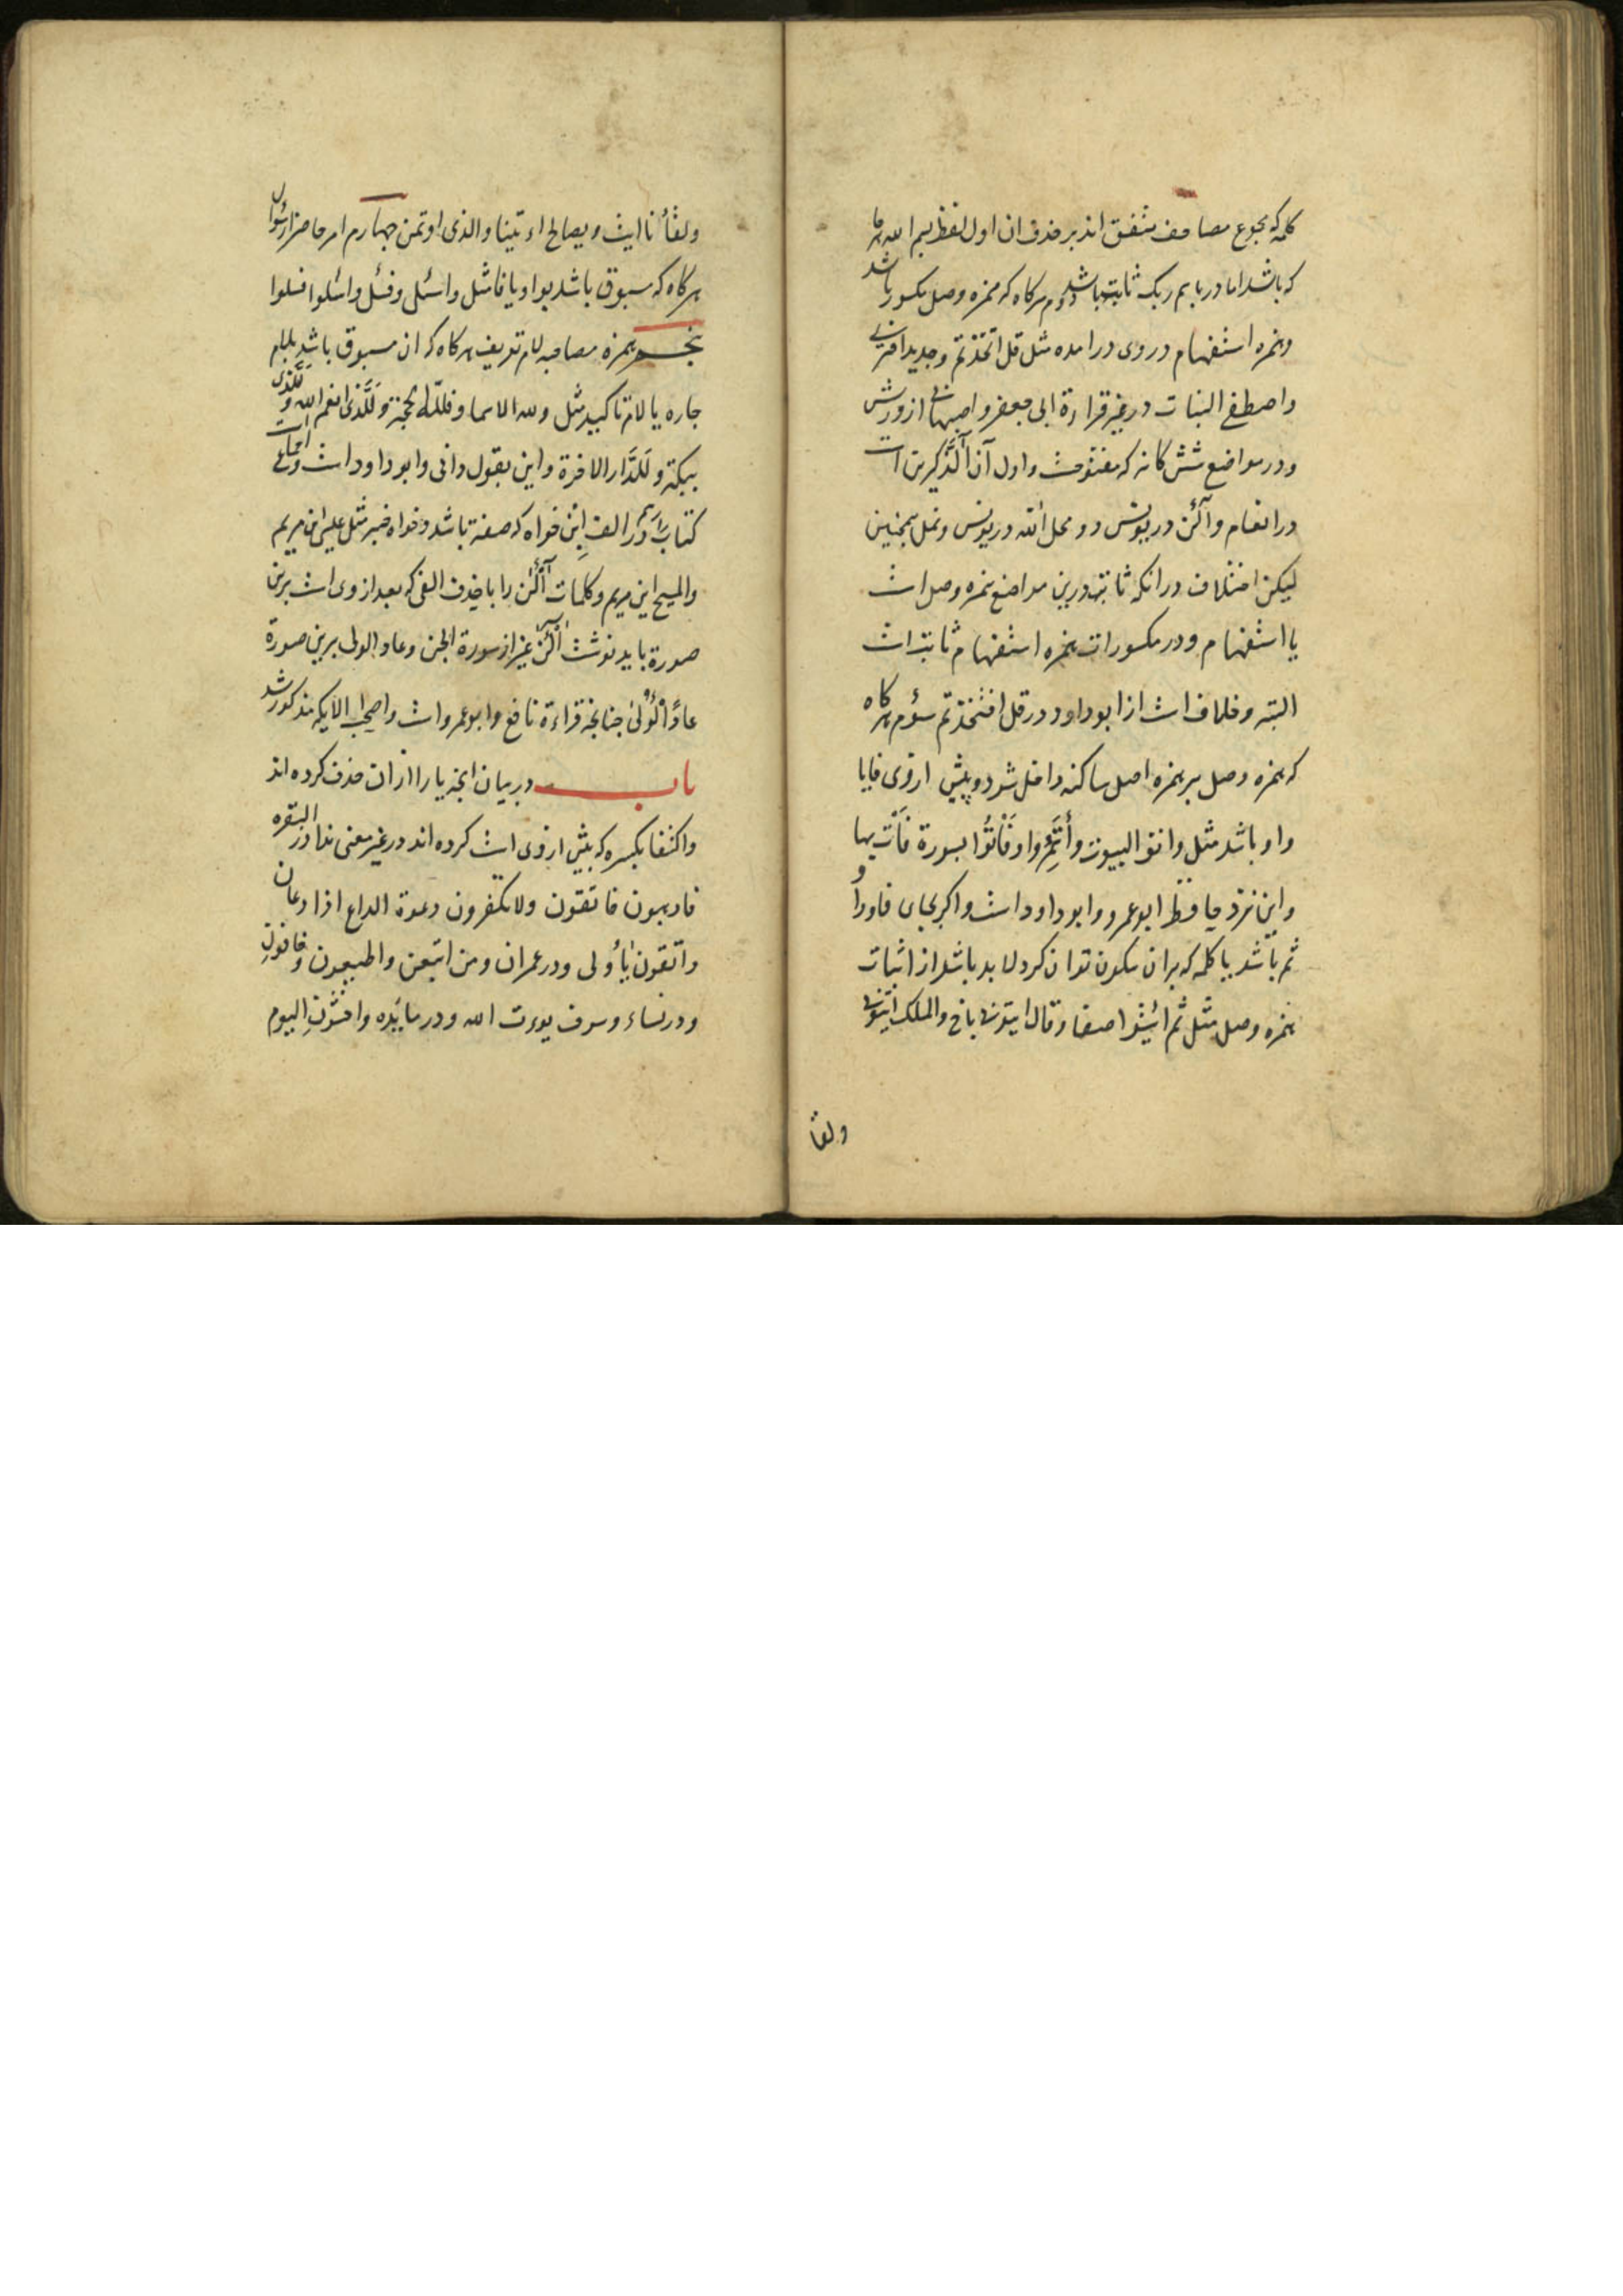 کلمه که بجموع مصاحف متفق اند بر حذف ان اول لفظ بسم الله هر جا
که باشد اما در باسم ربک ثابت باشد دوم هر کاه که همزه وصل مکسور باشد
وهمزه استفهام در وی در امده مثل قل اتخذتم وجدید افتری
واصطفی البنات در غیر قراءة ابی جعفر واصبهانی از ورش
ودر مواضع شش کانه که مفتوحست واول آن آلذکرین است
در انعام وآلئن در یونس دو محل الله در یونس ونمل همچنین
لیکن اختلاف در انکه ثابته درین مواضع همزه وصل است
یا استفهام ودر مکسورات همزه استفهام ثابت است
البته وخلاف است از ابو داود در قل افتخذتم سؤم هر کاه
که همزه وصل بر همزه اصل ساکنه داخل شود وپیش از وی فا یا
واو باشد مثل واتو البیوت وأتمروا وفأتوا بسورة فأت بها
واین نزد حافظ ابو عمرو وابو داود است واکر بجای فا و واو
ثم باشد یا کلمه که بران سکون توان کرد لا بد باشد از اثبات
همزه وصل مثل ثم ائتوا صفا وقال ایتونی باخ والملک ائتونی
ولقا
ولقأنا ایت ویصالح اء تینا والذی اوتمن چهارم امر حاضر از سؤال
هر کاه که مسبوق باشد بواو یا فا مثل واسئل وفسئل واسئلوا فسلوا
پنجم همزه مصاحبه لام تعریف هر کاه که ان مسبوق باشد بلام
جاره یا لام تاکید مثل ولله الاسما وفلله الحجة وللذی انعم الله وللذی
ببکة وللدار الاخرة واین بقول دانی وابو داود است
کتاب را ودر الف ابن خواه که صفة باشد وخواه خبر مثل عیسی ابن مریم
والمسیح ابن مریم وکلمات آلئن را با حذف الفی که بعد از وی است برین
صورة باید نوشت الئن غیر از سورة الجن وعاد الولی برین صورة
عادًا لؤلی چنانچه قراءة نافع وابو عمرو است واصحب الایکه مذکور شد
باب در بیان انچه یا را از ان حذف کرده اند
واکتفا بکسره که پیش از وی است کرده اند در غیر معنی ندا در البقره
فارهبون فاتقون ولا تکفرون دعوة الداع اذا دعان
واتقون یأولی ودر عمران ومن اتبعن واطیعون وخافون
ودر نساء وسوف یوت الله ودر مایده واخشون الیوم